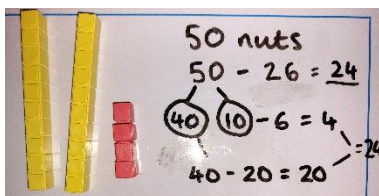 50 nuts
50 - 26 = 24
40 10 - 6 = 4
= 24
40 - 20 = 20